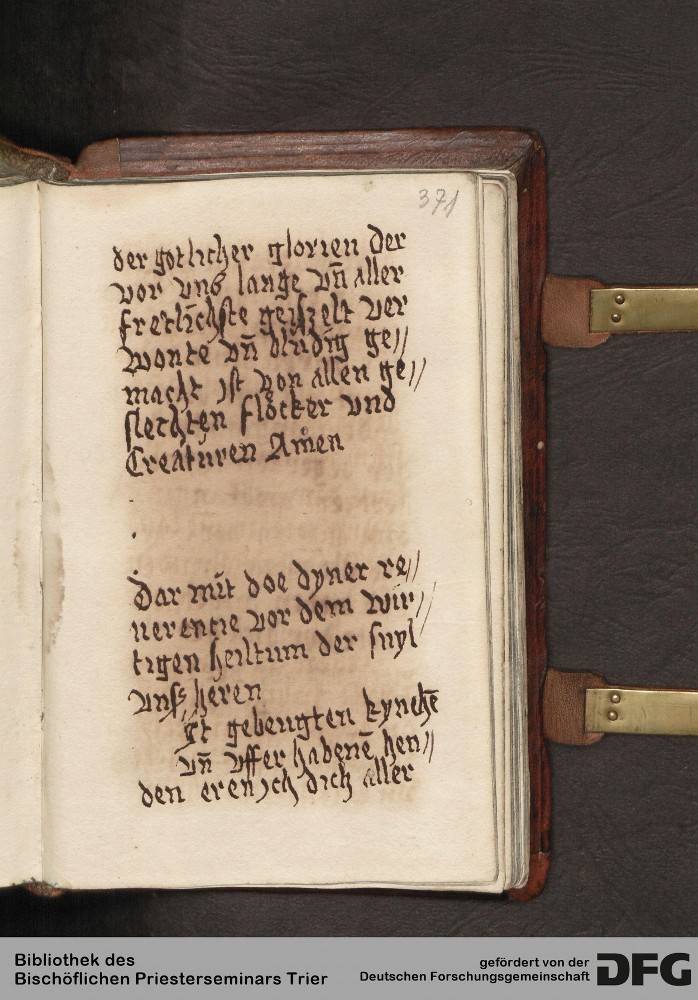 371
der gotlicher glorien der
vor vns lange vn̄ aller
fretlichste geiszelt ver
wonte vn̄ bludig ge//
macht ist von allen ge//
slechten flocker vnd
Creaturen Amen
Dar mit doe dyner re//
uerentie vor dem wir//
tigen heiltum der suyl
vnß heren
yt gebeugten kynehē
vn̄ vffer habenē hen//
den eren ich dich aller
Bibliothek des
Bischöflichen Priesterseminars Trier
gefördert von der
Deutschen Forschungsgemeinschaft
DFG